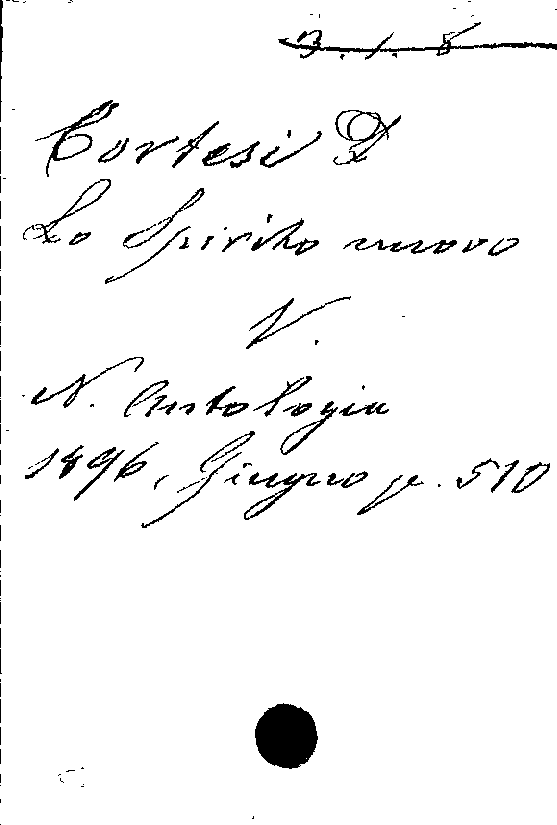 3.1.8
Cortesi D
Lo Spirito nuovo
V.
N. Antologia
1896, Giugno p. 510